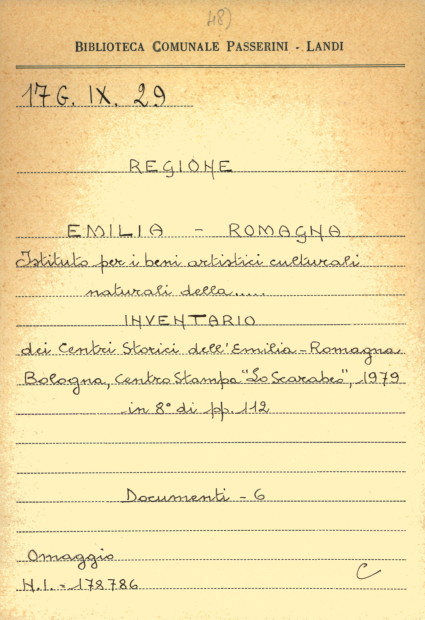 48)
BIBLIOTECA COMUNALE PASSERINI - LANDI
17 G. IX. 29
REGIONE
EMILIA - ROMAGNA
Istituto per i beni artistici culturali
naturali della.....
INVENTARIO
dei Centri Storici dell'Emilia-Romagna
Bologna, Centro Stampa "Lo Scarabeo", 1979
in 8° di pp. 112
Documenti - 6
Omaggio
N.I. - 178786
C